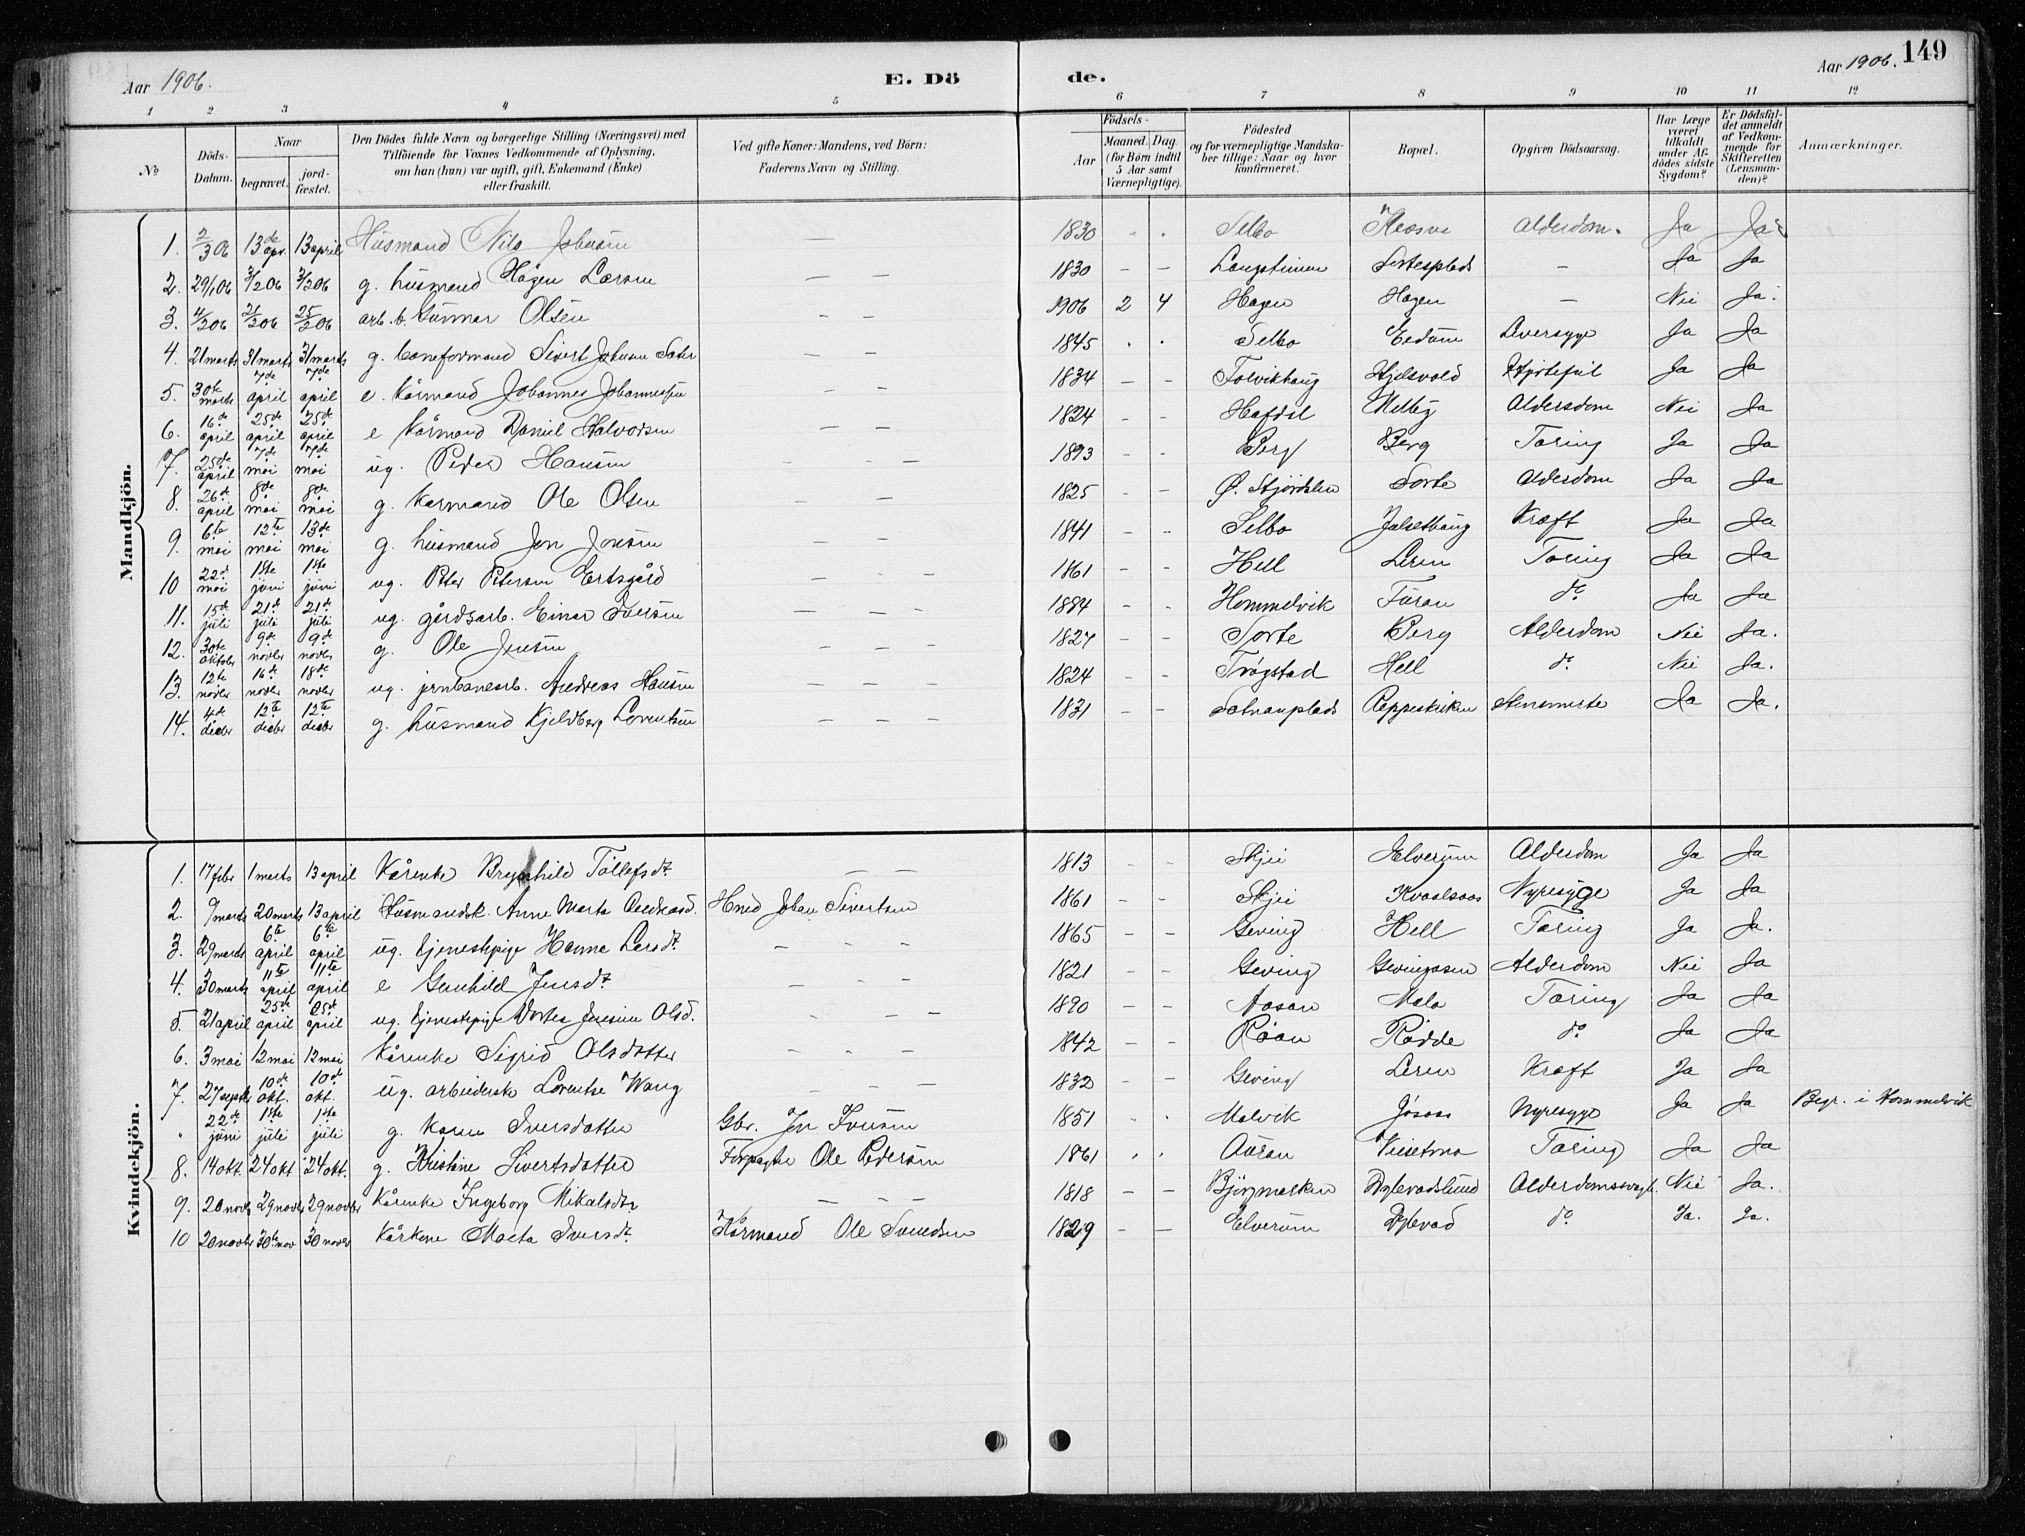 Aar 1906. E. Dö de. Aar 1906. 149
1 2 3 4 5 6 7 8 9 10 11 12
No Döds-Datum. Naar begravet. jord-fæstet. Den Dödes fulde Navn og borgerlige Stilling (Næringsvei) med Tilföiende for Voxnes Vedkommende af Oplysning, om han (hun) var ugift, gift, Enkemand (Enke) eller fraskilt. Ved gifte Koner: Mandens, ved Börn: Faderens Navn og Stilling. Födsels- Aar Maaned. Dag. (for Börn indtil 5 Aar samt Værnepligtige). Födested og for værnepligtige Mandskaber tillige: Naar og hvor konfirmeret. Bopæl. Opgiven Dödsaarsag. Har Læge været tilkaldt under Afdödes sidste Sygdom? Er Dödsfaldet anmeldt af Vedkommende for Skifteretten (Lensmanden)? Anmærkninger.
Mandkjön.
1. 2/3 06 13de apr. 13 april Husmand Nils Johnsen — — 1830 Selbo Alderdom. Ja Ja
2. 29/1 06 3/2 06 3/2 06 g. husmand Hågen Larsen — — 1830 — — Sortesplads — Ja Ja
3. 4/2 06 21/2 06 25/2 06 arb. b. Gunnar Olsen — — 1906 2 4 Hagen Hagen — Nei Ja.
4. 21 marts 31 marts 31 marts g. baneformand Sivert Johnsen — — 1845 Selbo Eidum Leversyge Ja Ja
5. 30te marts 7de april 7de april e. kårmand Johannes Johannessen — — 1834 — — Folvikhaug Hjelsvold Hjertefeil Ja Ja
6. 16de april 25de april 25de april e kårmand Daniel Halvorsen — — 1824 — — Hofdal Melby Aldersdom Nei Ja
7. 25de april 7de mai 7de mai ug. Peder Hansen — — — 1893 — — Berg Berg Tæring Ja Ja
8. 26de april 8de mai 8de mai g. kårmand Ole Olsen — — 1825 — — Ø. Stjørdalen Sorte Alderdom Ja Ja
9. 6te mai 12te mai 13de mai g. husmand Jon Jonsen — — 1841 — — Selbo Jalsethaug Kræft Ja Ja
10 22d mai 1ste juni 1ste juni ug. Peter Petersen Ertsgård — — — 1861 — — Hell Leren Tæring Ja Ja
11. 15de juli 21de juli 21de juli ug. gårdsarb. Einar Iversen — — — 1884 — — Hommelvik Furan do Ja Ja
12. 30te oktober 9de novbr 9de novbr g. Ole Jensen — — — 1827 — — Sorte Berg Alderdom Nei Ja.
13. 12te novbr 16de novbr 18de novbr ug. jernbanearb. Andreas Hansen — — — 1824 — — Trøgstad Hell do Nei Ja.
14. 4de decbr 12te decbr 12te decbr g. husmand Kjeldberg Lorentsen — — — 1831 — — Reppeskriken Ja Ja.
Kvindekjön.
1. 17 febr 1 marts 13 april Kårenke Brynhild Tollefsdt — — 1813 — — Skjei Elverum Alderdom Ja Ja
2. 9 marts 20 marts 13 april Husmandsk. Anne Marta Andreasd. Hmd Johan Sivertsen 1861 — — Skjei Kvaalsaas Nyresyge Ja Ja
3. 29 marts 6te april 6te april ug. tjenestepige Hanna Larsdt — — — 1865 — — Geving Hell Tæring Ja Ja.
4. 30 marts 11te april 11te april e Gunhild Jensdt — — — 1821 — — Geving Gevingaasen Alderdom Nei Ja
5. 21 april 25de april 25de april ug. tjenestepige Olsd. — — — 1890 — — Aasan Mæla Tæring Ja Ja
6. 3 mai 12 mai 12 mai kårenke Sigrid Olsdatter — — — 1842 — — Røan Rødde do Ja Ja
7. 27 septbr 10de okt. 10de okt. ug. arbeiderske Lorentse Wang — — — 1832 — — Geving Leren Kræft Ja Ja
" 22de juni 1ste juli 1ste juli g. Karen Iversdatter Gbr. Jon Iversen 1851 Malvik Jøsaas Nyresyge Ja Ja Begr. i Hommelvik
8. 14 okt. 24 okt 24 okt. g. Kristine Sivertsdatter Forpagter Ole Pedersen 1861 Auran Tæring Ja Ja
9. 20 novbr 29 novbr 29 novbr Kårenke Ingeborg Mikalsdtr — — — 1818 — — Bjørgmarken Dylevadslund Alderdomssvagh. Nei Ja.
10 20 novbr 30te nov 30 novbr Kårkone Marta Iversdt. Kårmand Ole Svendsen 1829 — — Elverum Dylevad do Ja. Ja.